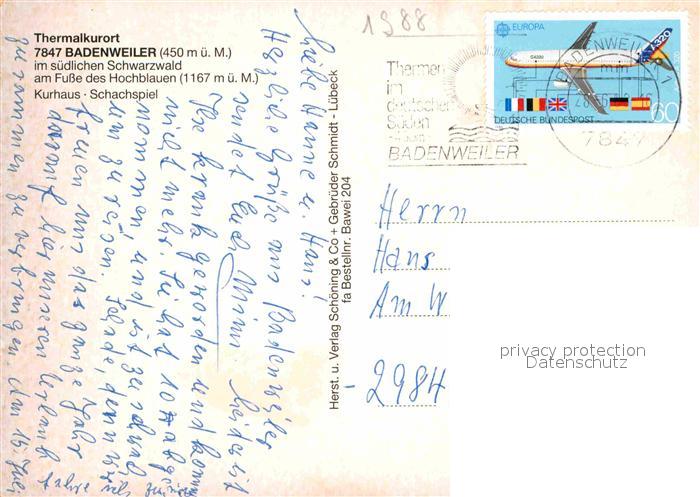 Thermalkurort
7847 BADENWEILER (450 m ü. M.)
im südlichen Schwarzwald
am Fuße des Hochblauen (1167 m ü. M.)
Kurhaus · Schachspiel
1988
Liebe Hanne u. Hans!
Herzliche Grüße aus Badenweiler
sendet Euch Mimi leider ist
krank geworden und kommt
nicht mehr. Sie hat 10
nommen, und ist zu schwach
um zu reisen. Schade, denn wir
freuen uns das ganze Jahr
darauf hier unseren Urlaub
zusammen zu verbringen am 15. Juli
fahre ich zurück
Herst. u. Verlag Schöning & Co + Gebrüder Schmidt - Lübeck
fa Bestellnr. Bawei 204
Thermen
im
deutschen
Süden
BADENWEILER
EUROPA
A320
DEUTSCHE BUNDESPOST
60
BADENWEILER 1
mm
7847
Herrn
Hans
Am W
- 2984
privacy protection
Datenschutz